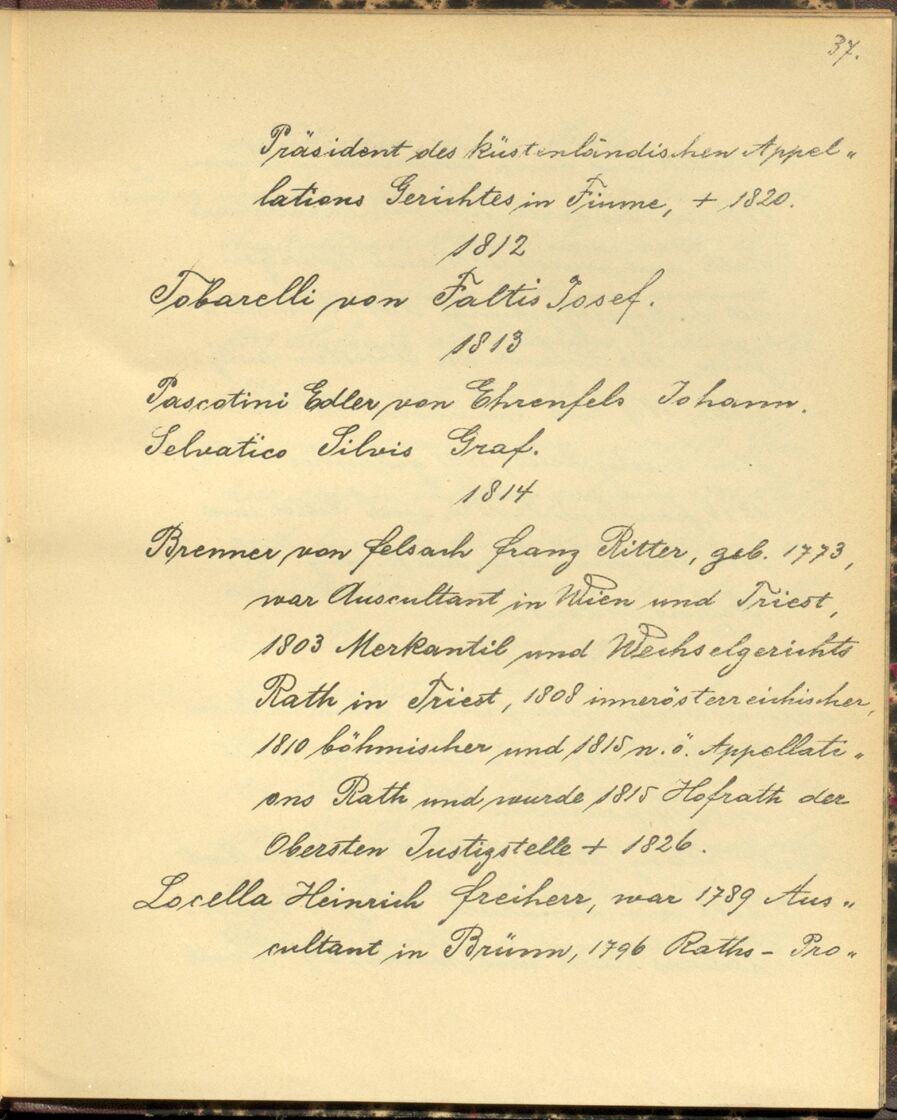 37.
Präsident des küstenländischen Appel„
lations Gerichtes in Fiume, + 1820.
1812
Tobarelli von Faltis Josef.
1813
Pascotini Edler von Ehrenfels Johann.
Selvatico Silvis Graf.
1814
Brenner von Felsach Franz Ritter, geb. 1773,
war Auscultant in Wien und Triest,
1803 Merkantil und Wechselgerichts
Rath in Triest, 1808 innerösterreichischer,
1810 böhmischer und 1815 n. ö. Appellati„
ons Rath und wurde 1815 Hofrath der
Obersten Justizstelle + 1826.
Locella Heinrich Freiherr, war 1789 Aus„
cultant in Brünn, 1796 Raths - Pro„